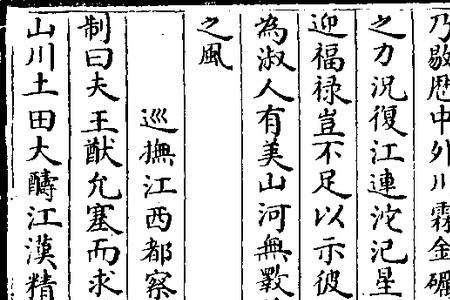 乃敭歴中外川霖金礪
之力況復江連沱汜星
迎福祿豈不足以示彼
為淑人有美山河無斁
之風
巡撫江西都察
制曰夫王猷允塞而求
山川土田大醻江漢精